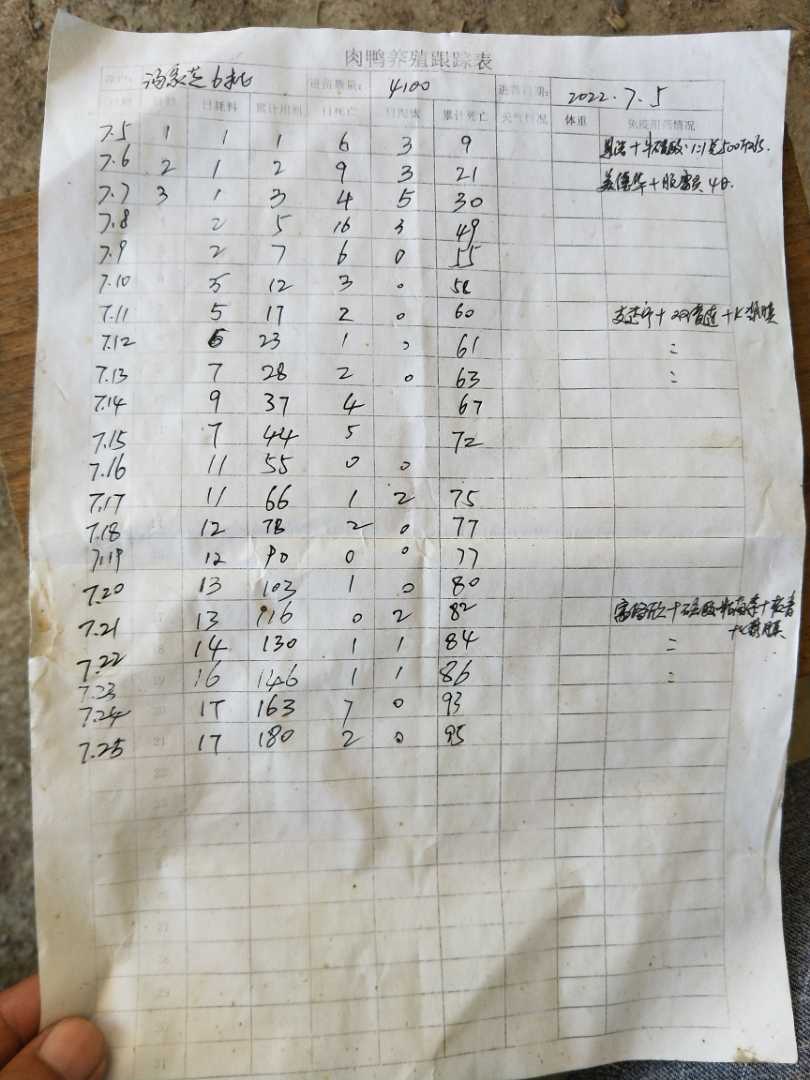 肉鸭养殖跟踪表
6批 进苗数量: 4100 进苗日期: 2022.7.5
日期 日龄 日耗料 累计用料 日死亡 日淘汰 累计死亡 天气情况 体重 免疫用药情况
7.5 1 1 1 6 3 9
7.6 2 1 2 9 3 21
7.7 3 1 3 4 5 30
7.8 2 5 16 3 49
7.9 2 7 6 0 55
7.10 5 12 3 0
7.11 5 17 2 0 60
7.12 6 23 1 0 61 =
7.13 7 28 2 0 63 =
7.14 9 37 4 67
7.15 7 44 5 72
7.16 11 55 0 0
7.17 11 66 1 2 75
7.18 12 78 2 0 77
7.19 12 90 0 0 77
7.20 13 103 1 0 80
7.21 13 116 0 2 82
7.22 14 130 1 1 84 =
7.23 16 146 1 1 86 =
7.24 17 163 7 0 93
7.25 21 17 180 2 0 95
22
23
24
25
26
27
28
29
30
31